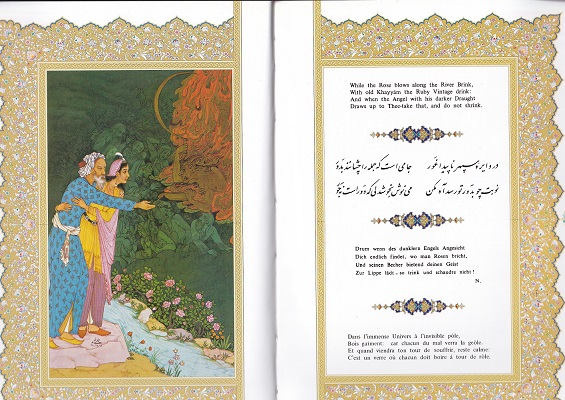 While the Rose blows along the River Brink,
With old Khayyám the Ruby Vintage drink:
And when the Angel with his darker Draught
Draws up to Thee-take that, and do not shrink.
در دایره سپهر ناپیدا غور جامی است که جمله را چشانند بدور
نوبت چو بدور تو رسد آه مکن می نوش بخوشدلی که دور است
Drum wenn des dunklern Engels Angesicht
Dich endlich findet, wo man Rosen bricht,
Und seinen Becher bietend deinen Geist
Zur Lippe lädt-so trink und schaudre nicht!
N.
Dans l'immense Univers à l'invisible pôle,
Bois gaîment: car chacun du mal verra la geôle.
Et quand viendra ton tour de souffrir, reste calme:
C'est un verre où chacun doit boire à tour de rôle.